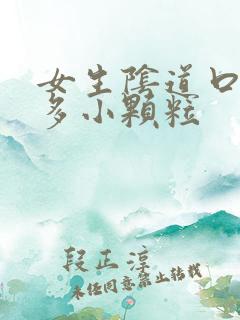 女生陰道口
多小顆粒
段正淳
未经同意禁止转载